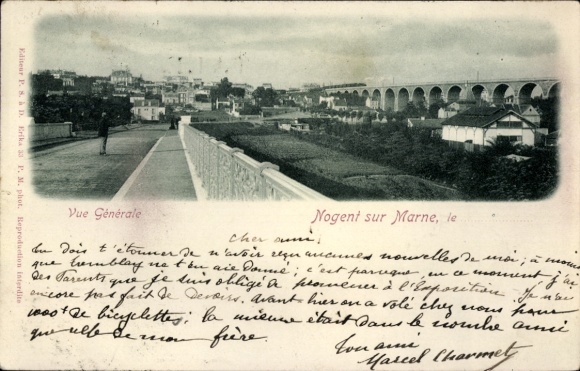 Editeur P. S. à D. Erika 35 P. M. phot. Reproduction interdite
Vue Générale
Nogent sur Marne, le
Cher ami,
tu dois t'étonner de n'avoir reçu aucunes nouvelles de moi; à moins
que Tremblay ne t'en aie donné; c'est parceque, en ce moment j'ai
des Parents que je suis obligé de promener à l'Exposition. Je n'ai
encore pas fait de Devoirs. Avant hier on a volé chez nous pour
1000f de bicyclettes; la mienne était dans le nombre ainsi
que celle de mon frère.
Ton ami
Marcel Charmet